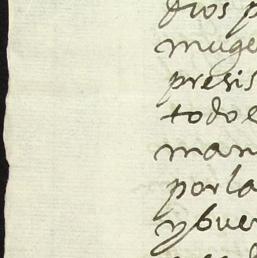 dios p
muge
presis
todo e
man
por la
y bue